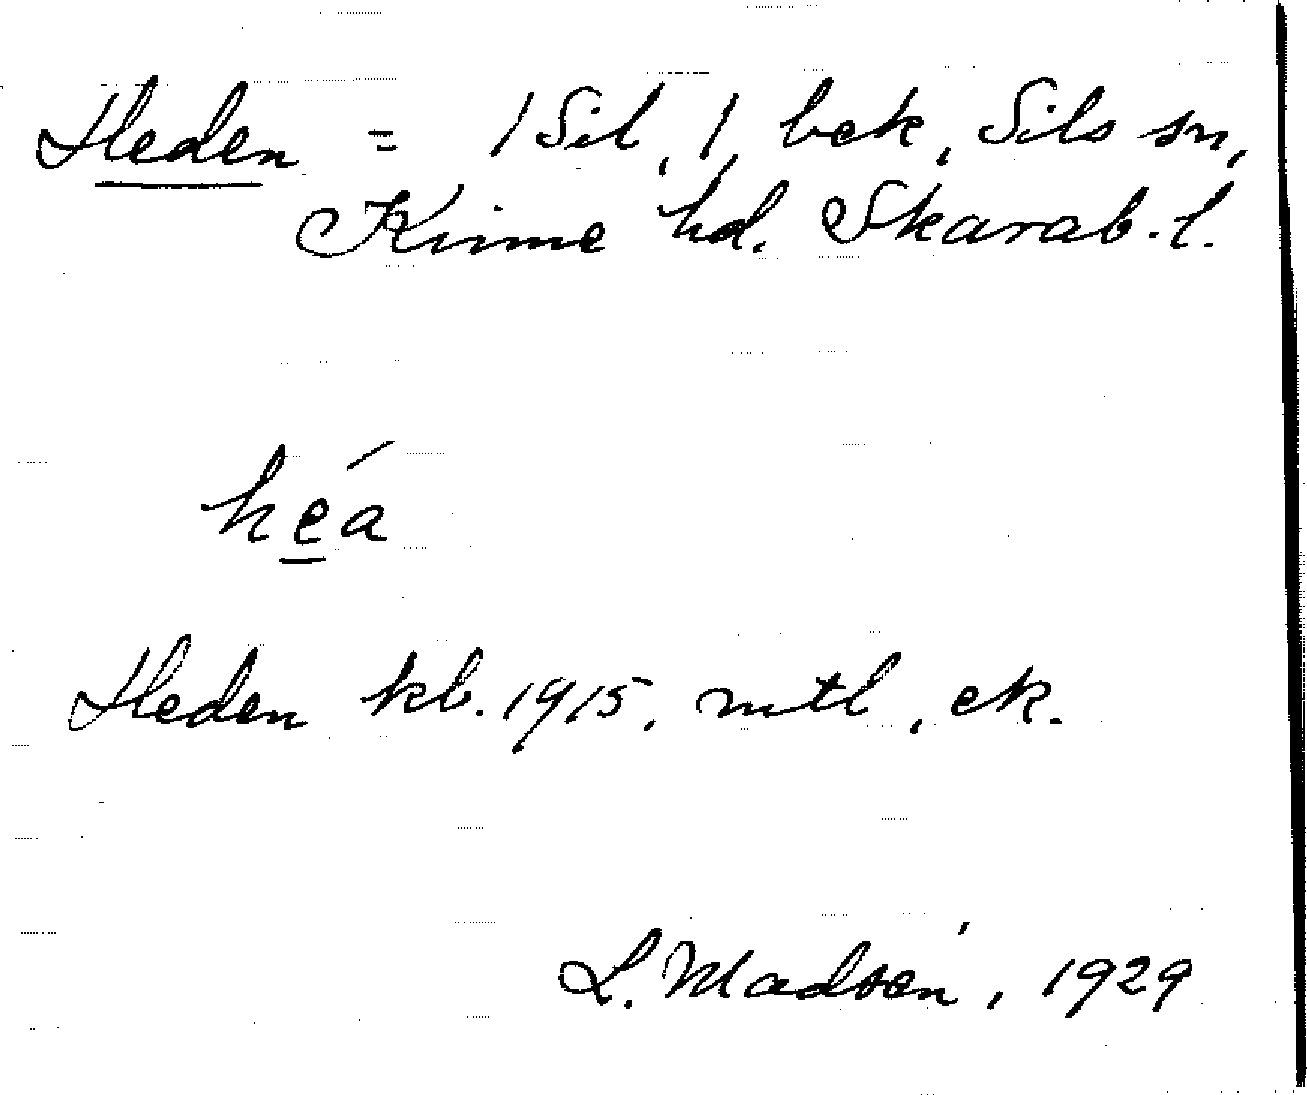 Heden = 1 Sil, 1, bek, Sils sn,
Kinne hd. Skarab. l.
heá
Heden kb. 1915, mtl, ek.
L. Madsén, 1929